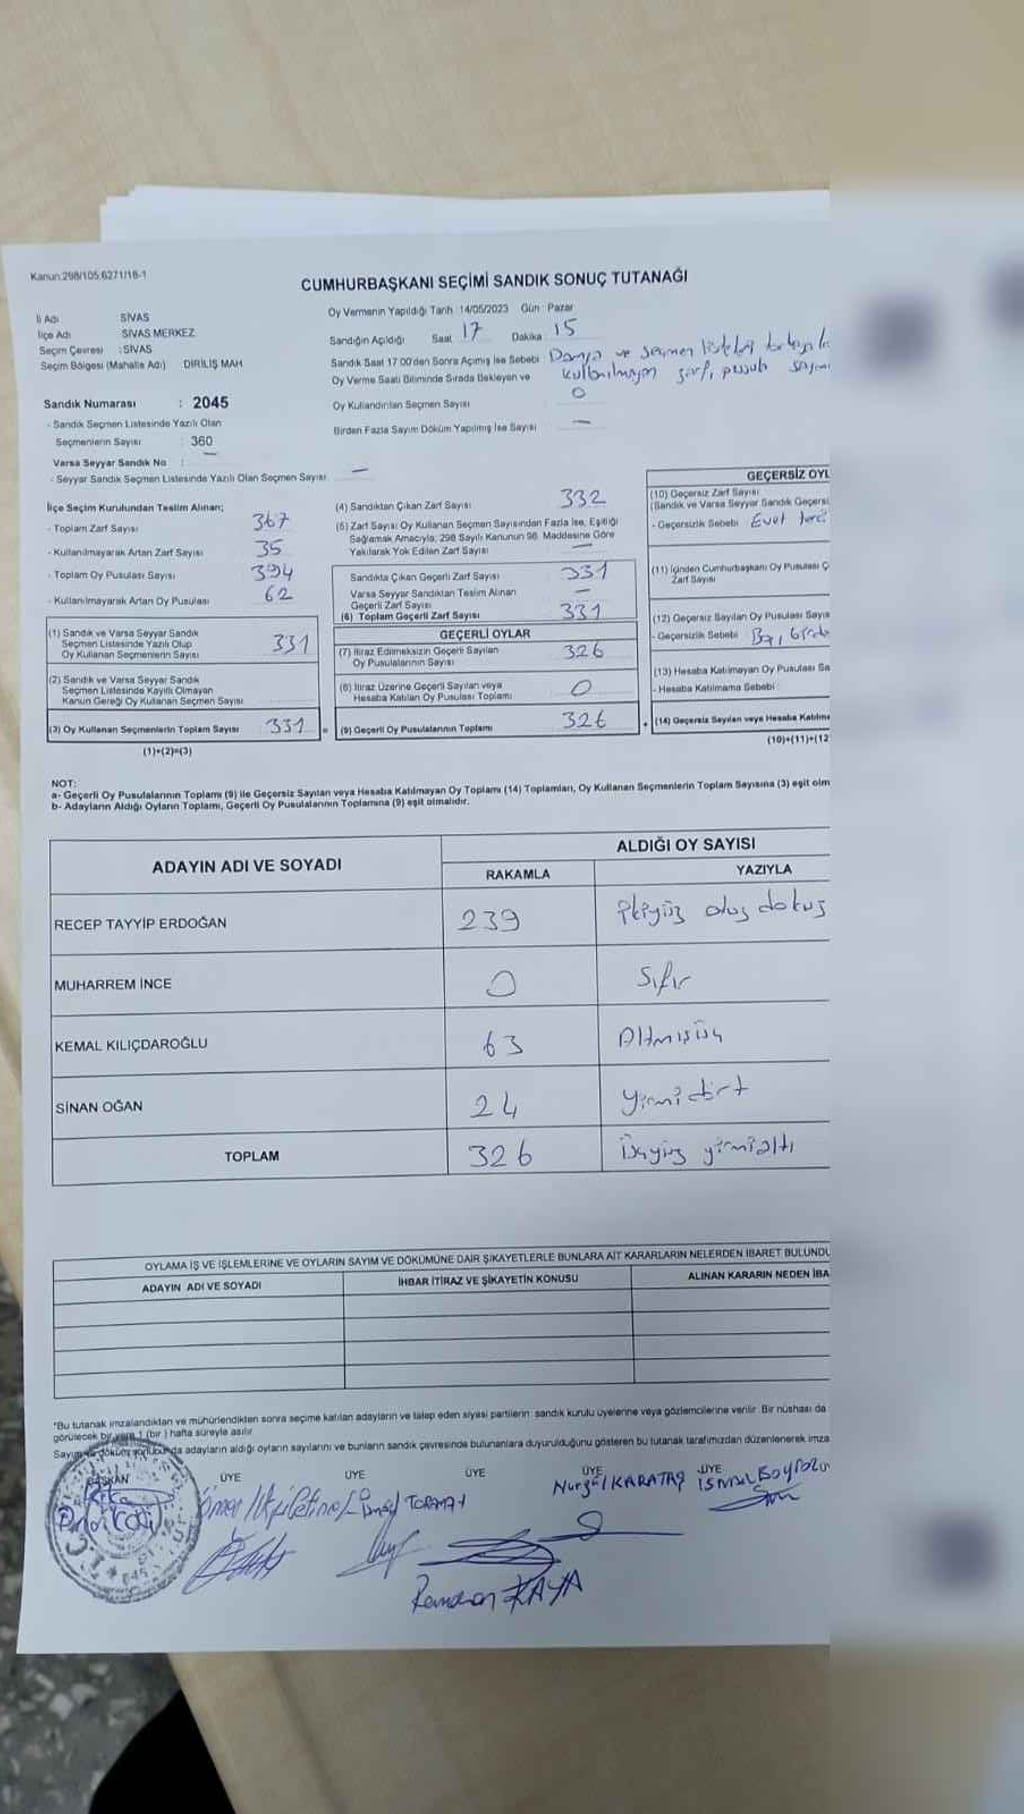 Kanun:298/105;6271/18-1
CUMHURBAŞKANI SEÇİMİ SANDIK SONUÇ TUTANAĞI
İl Adı : SİVAS
İlçe Adı : SİVAS MERKEZ
Seçim Çevresi : SİVAS
Seçim Bölgesi (Mahalle Adı) DİRİLİŞ MAH
Sandık Numarası : 2045
- Sandık Seçmen Listesinde Yazılı Olan
Seçmenlerin Sayısı : 360
Varsa Seyyar Sandık No : —
- Seyyar Sandık Seçmen Listesinde Yazılı Olan Seçmen Sayısı : —
Oy Vermenin Yapıldığı Tarih :14/05/2023 Gün : Pazar
Sandığın Açıldığı Saat 17 Dakika 15
Sandık Saat 17:00'den Sonra Açmış İse Sebebi : Damga ve seçmen listeleri
Oy Verme Saati Bitiminde Sırada Bekleyen ve kullanılmayan zarf, pusula sayımı
Oy Kullandırılan Seçmen Sayısı 0
Birden Fazla Sayım Döküm Yapılmış İse Sayısı —
İlçe Seçim Kurulundan Teslim Alınan;
- Toplam Zarf Sayısı 367
- Kullanılmayarak Artan Zarf Sayısı 35
- Toplam Oy Pusulası Sayısı 394
- Kullanılmayarak Artan Oy Pusulası 62
(1) Sandık ve Varsa Seyyar Sandık
Seçmen Listesinde Yazılı Olup
Oy Kullanan Seçmenlerin Sayısı 331
(2) Sandık ve Varsa Seyyar Sandık
Seçmen Listesinde Kayıtlı Olmayan
Kanun Gereği Oy Kullanan Seçmen Sayısı
(3) Oy Kullanan Seçmenlerin Toplam Sayısı 331
(1)+(2)=(3)
(4) Sandıktan Çıkan Zarf Sayısı 332
(5) Zarf Sayısı Oy Kullanan Seçmen Sayısından Fazla İse, Eşitliği
Sağlamak Amacıyla, 298 Sayılı Kanunun 98. Maddesine Göre
Yakılarak Yok Edilen Zarf Sayısı —
Sandıkta Çıkan Geçerli Zarf Sayısı 331
Varsa Seyyar Sandıktan Teslim Alınan
Geçerli Zarf Sayısı —
(6) Toplam Geçerli Zarf Sayısı 331
GEÇERLİ OYLAR
(7) İtiraz Edilmeksizin Geçerli Sayılan
Oy Pusulalarının Sayısı 326
(8) İtiraz Üzerine Geçerli Sayılan veya
Hesaba Katılan Oy Pusulası Toplamı 0
= (9) Geçerli Oy Pusulalarının Toplamı 326 +
GEÇERSİZ OYL
(10) Geçersiz Zarf Sayısı
(Sandık ve Varsa Seyyar Sandık Geçersi
- Geçersizlik Sebebi Evet
(11) İçinden Cumhurbaşkanı Oy Pusulası Ç
Zarf Sayısı
(12) Geçersiz Sayılan Oy Pusulası Sayıs
- Geçersizlik Sebebi
(13) Hesaba Katılmayan Oy Pusulası Sa
- Hesaba Katılmama Sebebi :
(14) Geçersiz Sayılan veya Hesaba Katılma
(10)+(11)+(12
NOT:
a- Geçerli Oy Pusulalarının Toplamı (9) ile Geçersiz Sayılan veya Hesaba Katılmayan Oy Toplamı (14) Toplamları, Oy Kullanan Seçmenlerin Toplam Sayısına (3) eşit olm
b- Adayların Aldığı Oyların Toplamı, Geçerli Oy Pusulalarının Toplamına (9) eşit olmalıdır.
ADAYIN ADI VE SOYADI ALDIĞI OY SAYISI
RAKAMLA YAZIYLA
RECEP TAYYİP ERDOĞAN 239 ikiyüz otuz dokuz
MUHARREM İNCE 0 Sıfır
KEMAL KILIÇDAROĞLU 63 Altmışüç
SİNAN OĞAN 24 yirmidört
TOPLAM 326 üçyüz yirmialtı
OYLAMA İŞ VE İŞLEMLERİNE VE OYLARIN SAYIM VE DÖKÜMÜNE DAİR ŞİKAYETLERLE BUNLARA AİT KARARLARIN NELERDEN İBARET BULUNDU
ADAYIN ADI VE SOYADI İHBAR İTİRAZ VE ŞİKAYETİN KONUSU ALINAN KARARIN NEDEN İBA
*Bu tutanak imzalandıktan ve mühürlendikten sonra seçime katılan adayların ve talep eden siyasi partilerin; sandık kurulu üyelerine veya gözlemcilerine verilir. Bir nüshası da
görülecek bir yere 1 (bir ) hafta süreyle asılır
Sayım ve döküm sonucunda adayların aldığı oyların sayılarını ve bunların sandık çevresinde bulunanlara duyurulduğunu gösteren bu tutanak tarafımızdan düzenlenerek imza
BAŞKAN ÜYE ÜYE ÜYE ÜYE ÜYE
Nurgül KARATAŞ
Ramazan KAYA